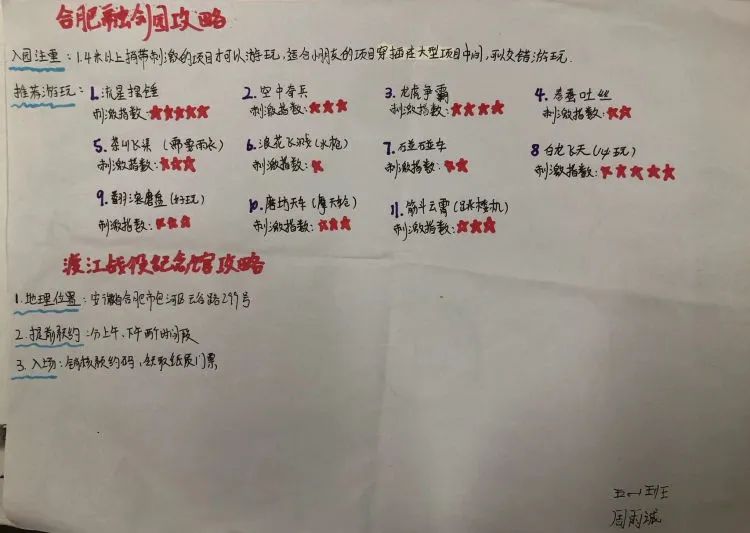 合肥融创园攻略
入园注意：1.4米以上携带刺激的项目才可以游玩，适合小朋友的项目穿插在大型项目中间，可以交错游玩.
推荐游玩：1.流星摆锤 2.空中奇兵 3.龙虎争霸 4.卷蚕吐丝
刺激指数：★★★★★ 刺激指数：★★★ 刺激指数：★★★★ 刺激指数：★★
5.茶山飞渠（需要雨衣） 6.浪花飞溅(水枪) 7.碰碰车 8白龙飞天(1.4玩)
刺激指数：★★★ 刺激指数：★ 刺激指数：★★ 刺激指数：★★★★★
9.翻滚磨盘(好玩) 10.磨坊天车(摩天轮) 11.筋斗云霄(跳楼机)
刺激指数：★★★ 刺激指数：★★★ 刺激指数：★★★
渡江战役纪念馆攻略
1.地理位置：安徽省合肥市包河区云谷路299号
2.提前预约：分上午、下午两个时间段
3.入场：预约码，领取纸质门票
五(1)班
周雨诚